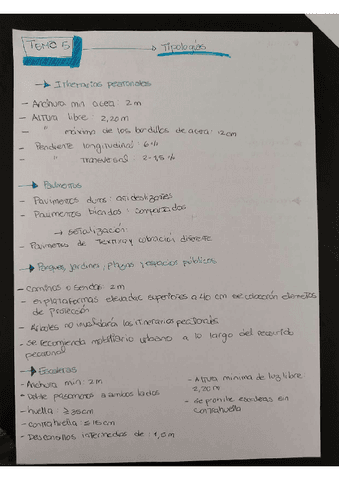 TEMA 5 → Tipologías
→ Itinerarios peatonales
- Anchura min acera : 2 m
- Altura libre : 2,20 m
- " máxima de los bordillos de acera : 12 cm
- Pendiente longitudinal : 6 %
- " transversal : 2
→ Pavimentos
- Pavimentos duros : antideslizantes
- Pavimentos blandos : compactados
→ señalización:
- Pavimentos de textura y coloración diferente
→ Parques, jardines, plazas y espacios públicos
- Caminos o sendas : 2 m
- en plataformas elevadas superiores a 40 cm se colocarán elementos
de protección
- Árboles no invalidarán los itinerarios peatonales
- se recomienda mobiliario urbano a lo largo del recorrido
peatonal
→ Escaleras
- Anchura min : 2 m
- Doble pasamanos a ambos lados
- huella : ≥ 35 cm
- contrahuella : ≤ 15 cm
- Descansillos intermedios de : 1,0 m
- Altura mínima de luz libre
2,20 m
- se prohíbe escaleras sin
contrahuella